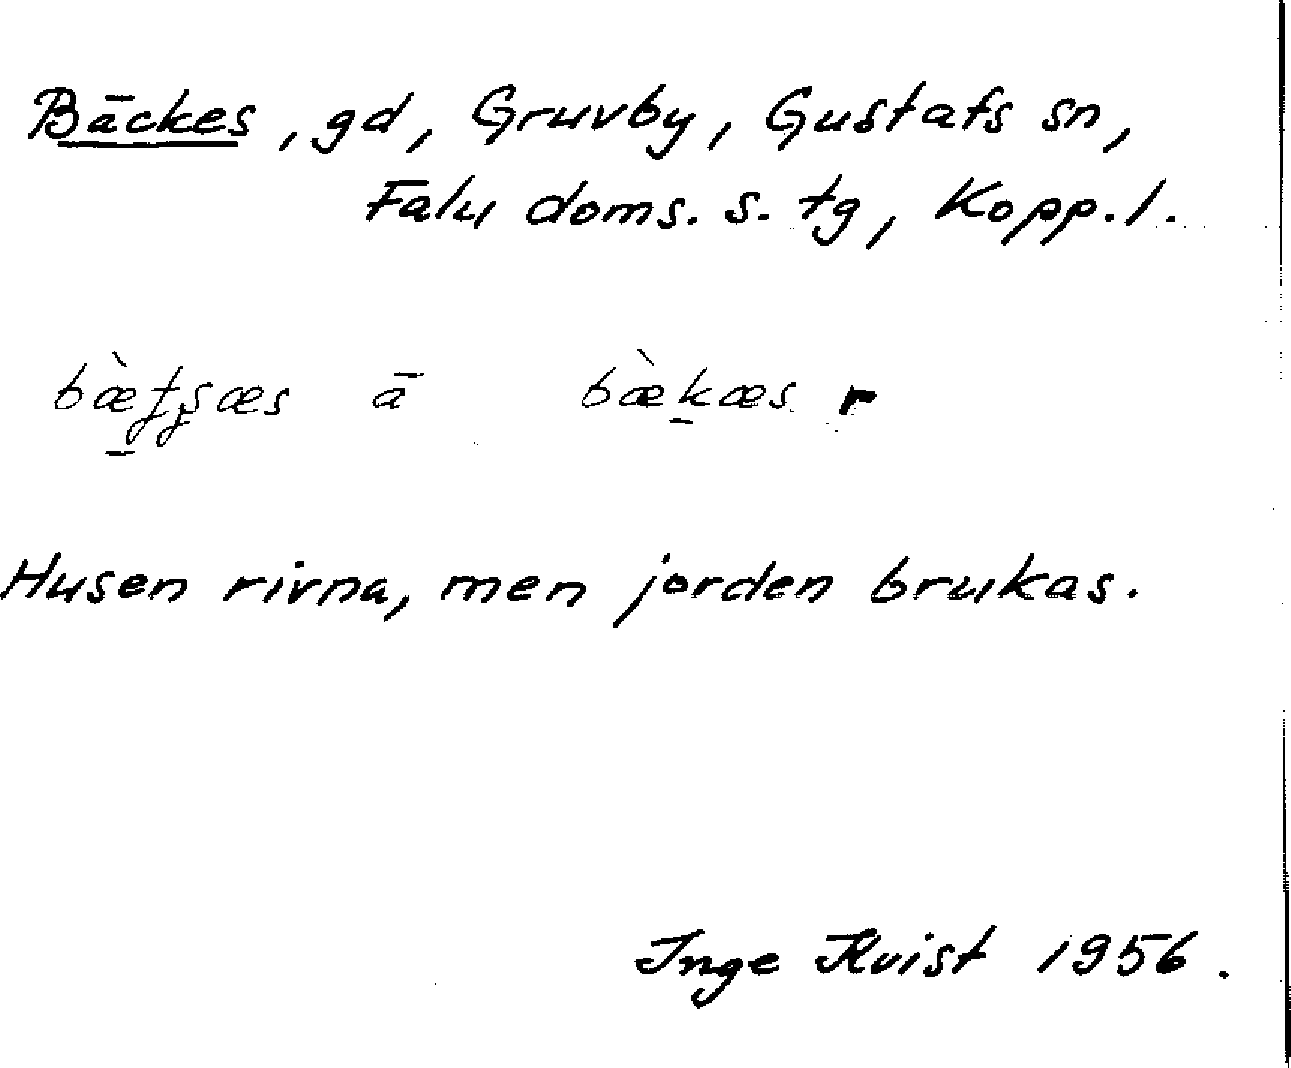 Bäckes, gd, Gruvby, Gustafs sn,
Falu doms. s. tg, Kopp. l.
ā bæ̀k̠æs r
Husen rivna, men jorden brukas.
Inge Kvist 1956.